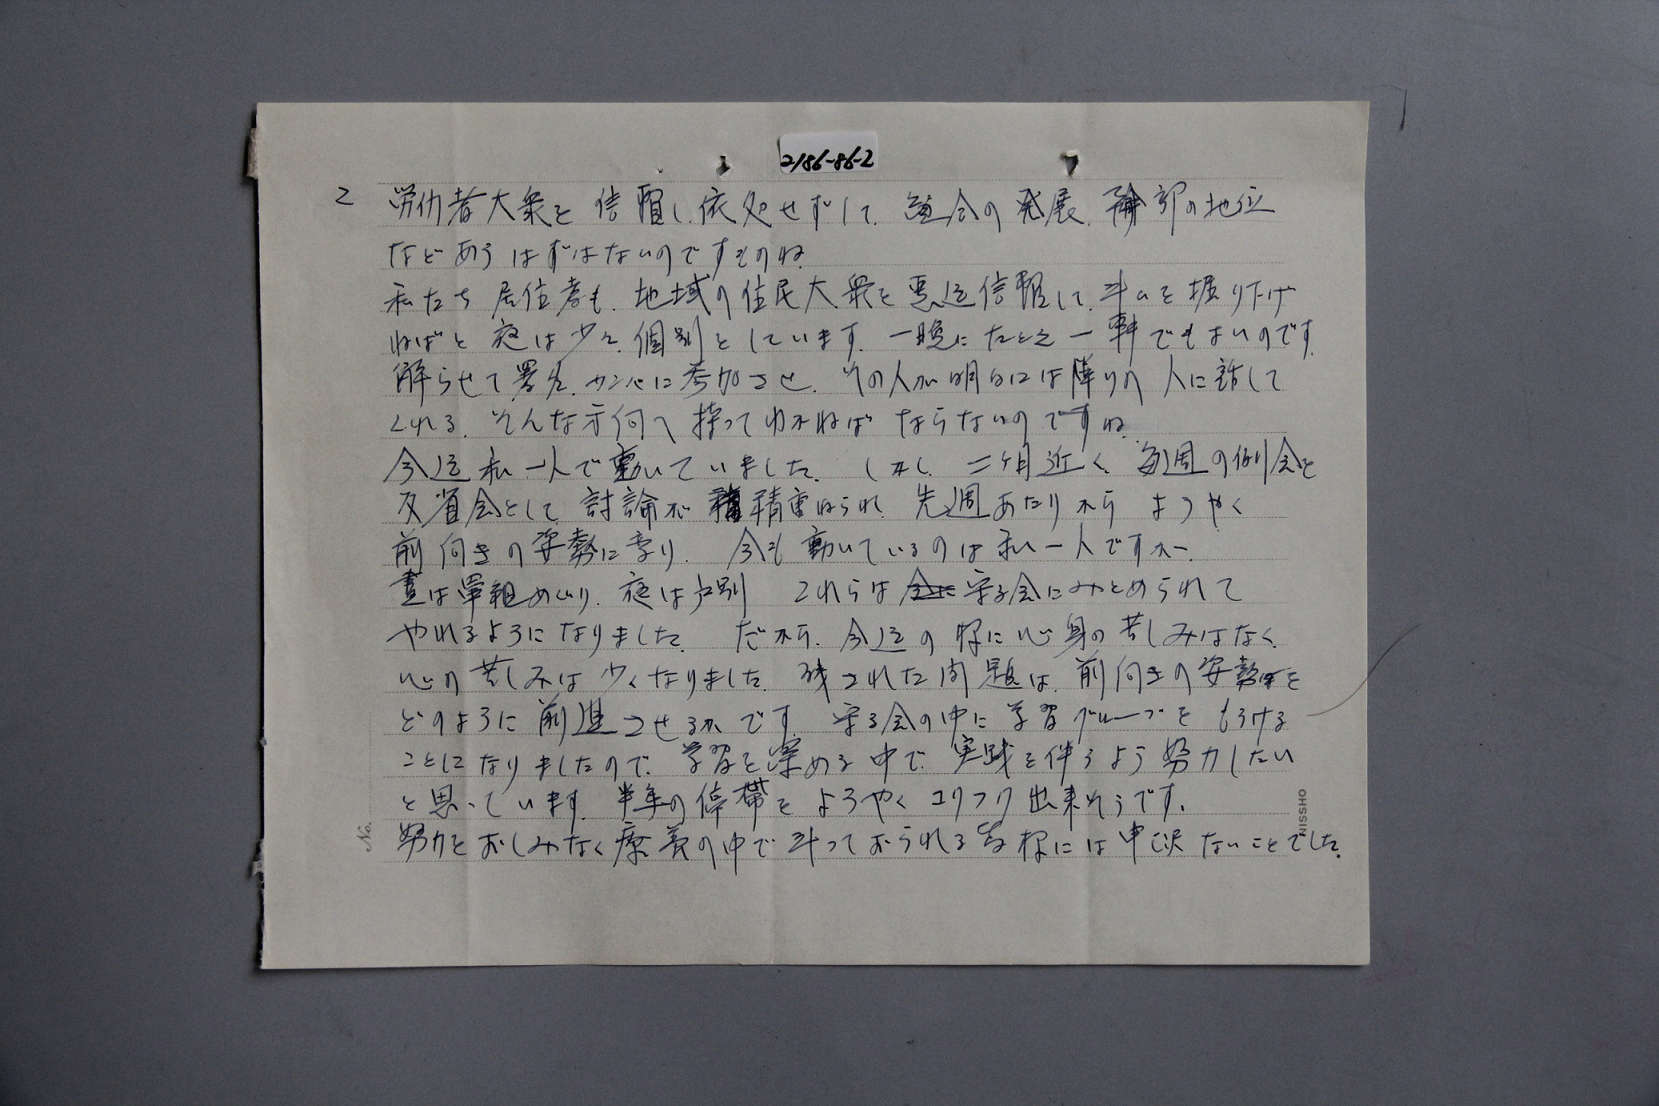 2186-86-2
2 労仂者大衆を信頼し、依処せずして、組合の発展、幹部の地位
などあろうはずはないのですものね
私たち居住者も、地域の住民大衆を信頼して、斗いを掘り下げ
ねばと夜は少々個別をしています。一晩にたとえ一軒でもよいのです。
解らせて署名、カンパに参加させ、その人が明日には隣りの人に話して
くれる。そんな方向へ持ってゆかねばならないのですね
今迄私一人で動いていました。しかし、二ヶ月近く、毎週の例会を
反省会として、討論が積重ねられ、先週あたりからようやく
前向きの姿勢に変り、今も動いているのは私一人ですが、
昼は単組めぐり、夜は戸別 これらは守る会にみとめられて
やれるようになりました。だから、今迄の様に心身の苦しみはなく、
心の苦しみは少くなりました。残された問題は、前向きの姿勢を
どのように前進させるかです。守る会の中に学習グループをもうける
ことになりましたので、学習を深める中で、実践を伴うよう努力したい
と思っています。半年の停滞をようやく出来そうです。
努力をおしみなく療養の中で斗っておられる皆様には申訳ないことでした。
No.
NISSHO